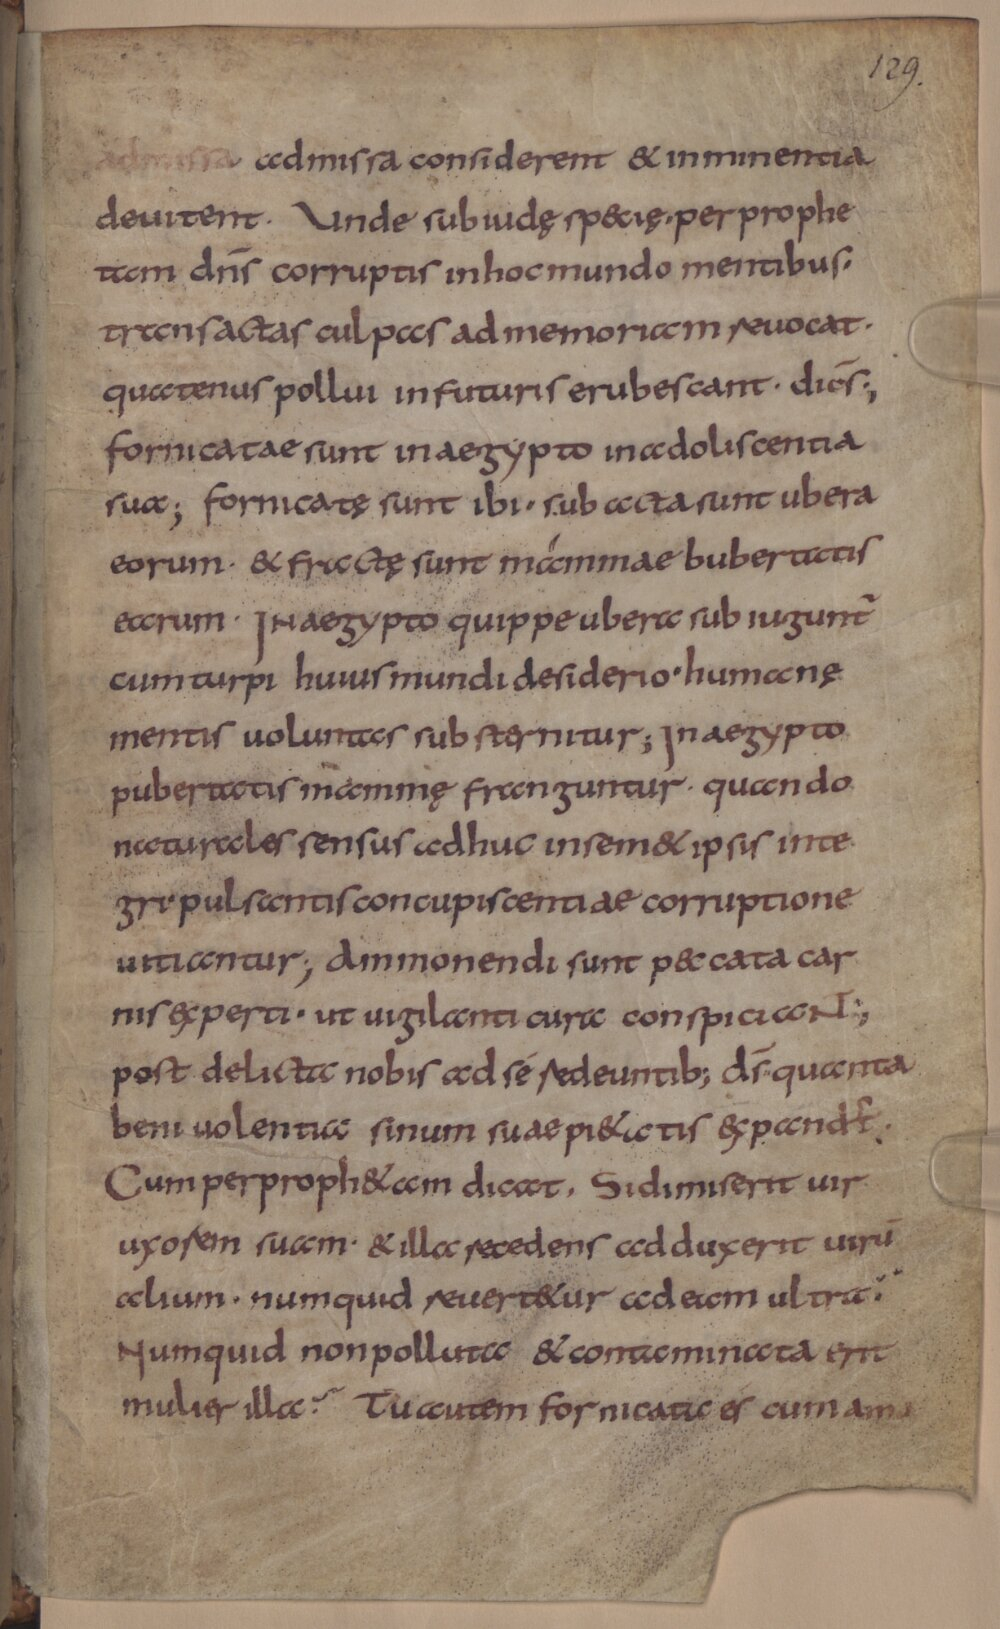 129.
admissa admissa considerent & inminentia
deuitent. Unde sub iudę specię. per prophe
tam dn̄s corruptis in hoc mundo mentibus.
transactas culpas ad memoriam reuocat.
quatenus pollui in futuris erubescant. dicēs.,
fornicatae sunt in aegypto in adoliscentia
sua; fornicatę sunt ibi. subacta sunt ubera
eorum. & fractę sunt mammae bubertatis
earum. In aegypto quippe ubera subiugunt̄
cum turpi huius mundi desiderio. humanę
mentis uoluntas substernitur; In aegypto
pubertatis mammę franguntur. quando
naturales sensus adhuc in sem&ipsis inte
gri. pulsantis concupiscentiae corruptione
uitiantur; Ammonendi sunt peccata car
nis experti. ut uigilanti cura conspiciant;
post delicta nobis ad sé redeuntib; d̄s. quanta
beniuolentia sinum suae pi&atis expandat.
Cum per proph&am dicat. Si dimiserit uir
uxorem suam. & illa recedens adduxerit uirū
alium. numquid reuert&ur ad eam ultra?
Numquid non polluta & contaminata erit
mulier illa? Tu autem fornicata es cum ama